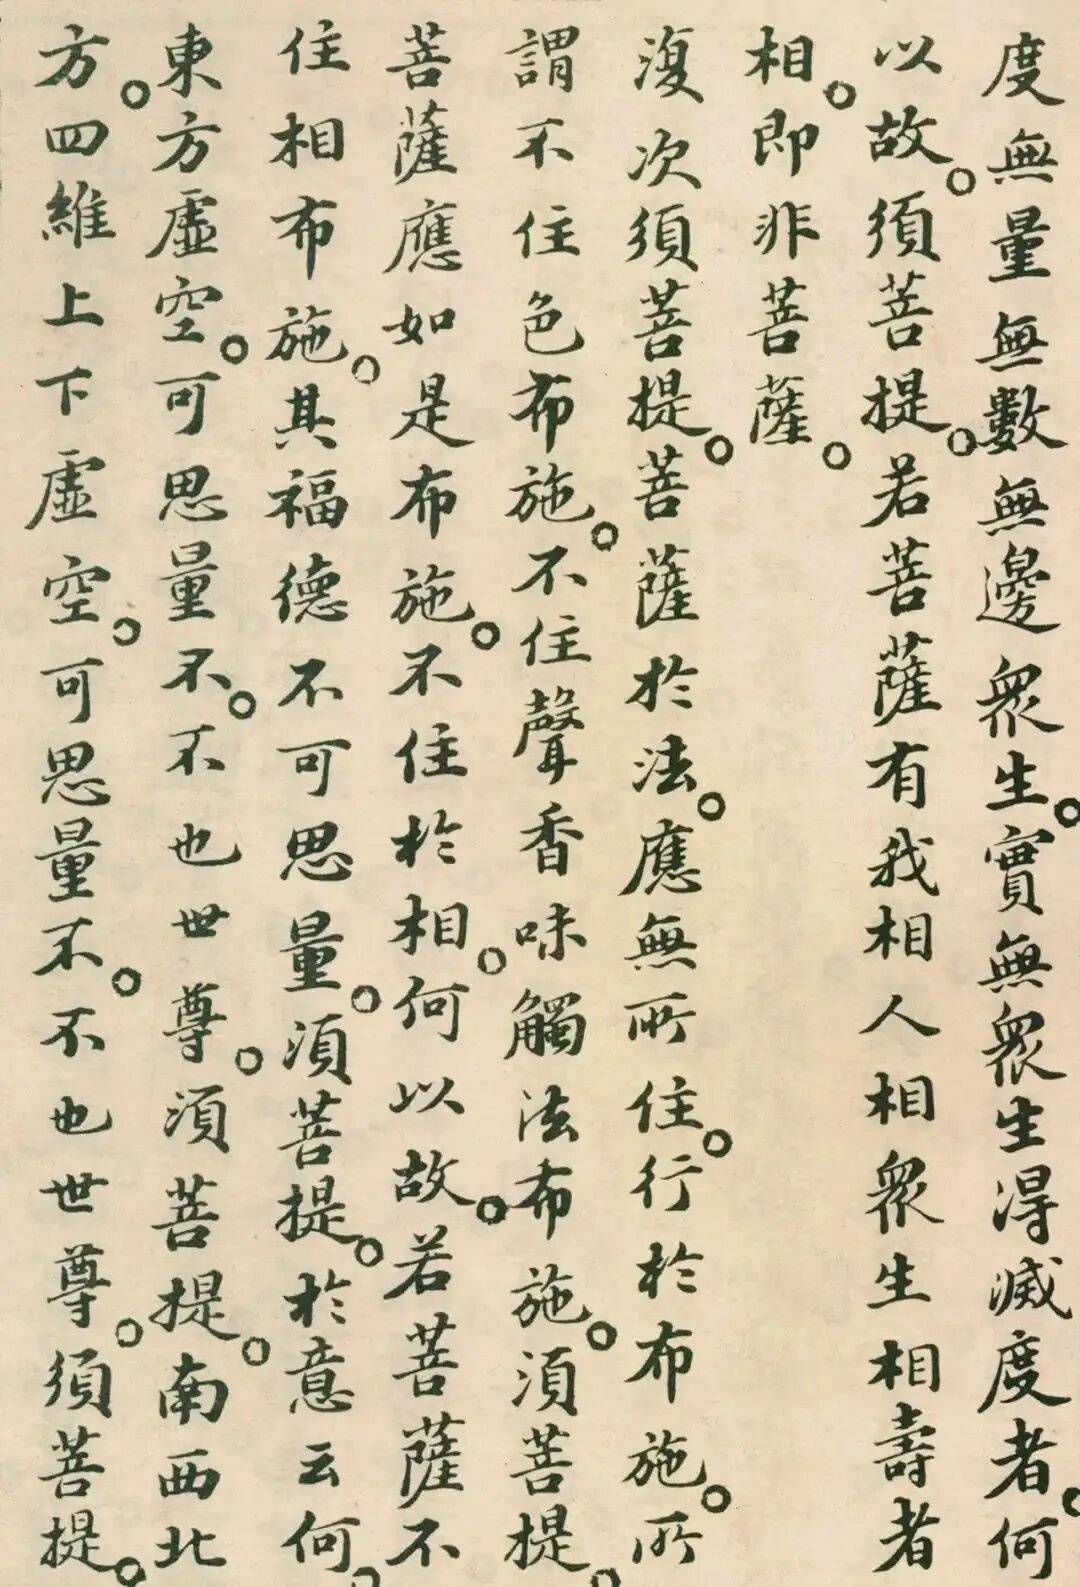 度無量無數無邊眾生。實無眾生得滅度者。何
以故。須菩提。若菩薩有我相人相眾生相壽者
相。即非菩薩。
復次須菩提。菩薩於法。應無所住。行於布施。所
謂不住色布施。不住聲香味觸法布施。須菩提。
菩薩應如是布施。不住於相。何以故。若菩薩不
住相布施。其福德不可思量。須菩提。於意云何。
東方虛空。可思量不。不也世尊。須菩提。南西北
方。四維上下虛空。可思量不。不也世尊。須菩提。